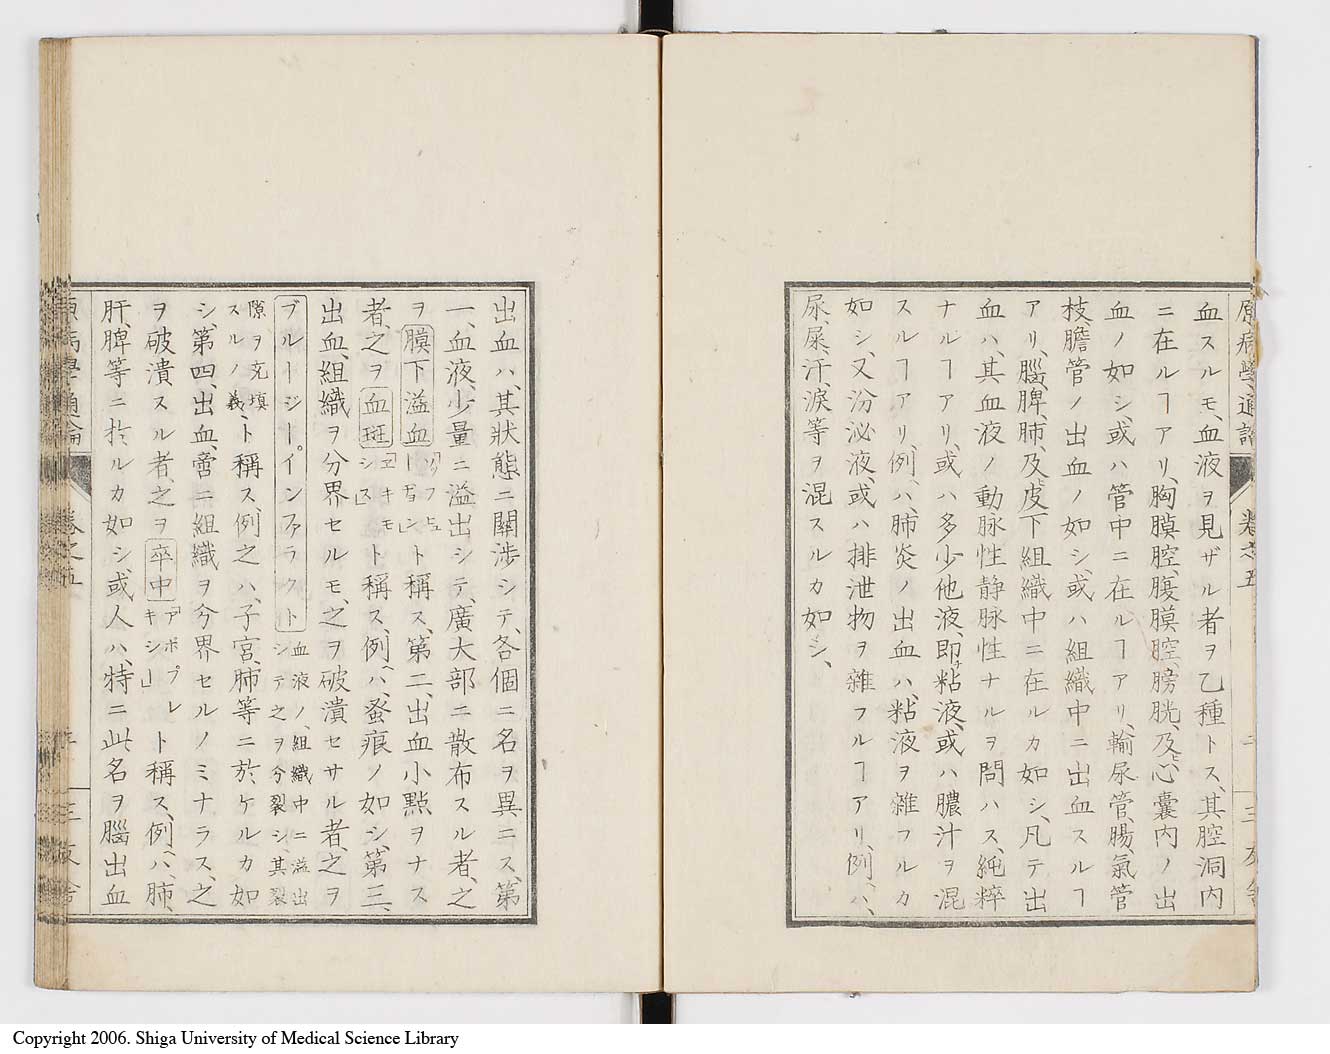 原病學通論
卷之五
三友舍
血スルモ、血液ヲ見ザル者ヲ乙種トス、其腔洞内
ニ在ルヿアリ、胸膜腔、腹膜腔、膀胱、及ヒ心囊内ノ出
血ノ如シ、或ハ管中ニ在ルヿアリ、輸尿管、腸、氣管
枝、膽管ノ出血ノ如シ、或ハ組織中ニ出血スルヿ
アリ、腦、脾、肺、及ヒ皮下組織中ニ在ルカ如シ、凡テ出
血ハ、其血液ノ動脉性静脉性ナルヲ問ハス、純粹
ナルヿアリ、或ハ多少他液、即チ粘液、或ハ膿汁ヲ混
スルヿアリ、例ハ、肺炎ノ出血ハ、粘液ヲ雜フルカ
如シ、又汾泌液、或ハ排泄物ヲ雜フルヿアリ、例ハ、
尿、屎、汗、淚等ヲ混スルカ如シ、
出血ハ、其狀態ニ關渉シテ、各個ニ名ヲ異ニス、第
一、血液、少量ニ溢出シテ、廣大部ニ散布スル者、之
ヲ膜下溢血「シュフュージーン」ト稱ス、第二、出血小點ヲナス
者、之ヲ血斑「エキモシス」ト稱ス、例ハ、蚤痕ノ如シ、第三、
出血、組織ヲ分界セルモ、之ヲ破潰セサル者、之ヲ
ブルージーインファラクト血液ノ、組織中ニ溢出シテ之ヲ分裂シ、其裂
隙ヲ充填スルノ義、ト稱ス、例之ハ、子宮、肺等ニ於ケルカ如
シ、第四、出血、啻ニ組織ヲ分界セルノミナラス、之
ヲ破潰スル者、之ヲ卒中「アポプレキシ」ト稱ス、例ハ、肺、
肝、脾等ニ於ルカ如シ、或人ハ、特ニ此名ヲ腦出血
原病學通論
卷之五
三友舍
Copyright 2006. Shiga University of Medical Science Library